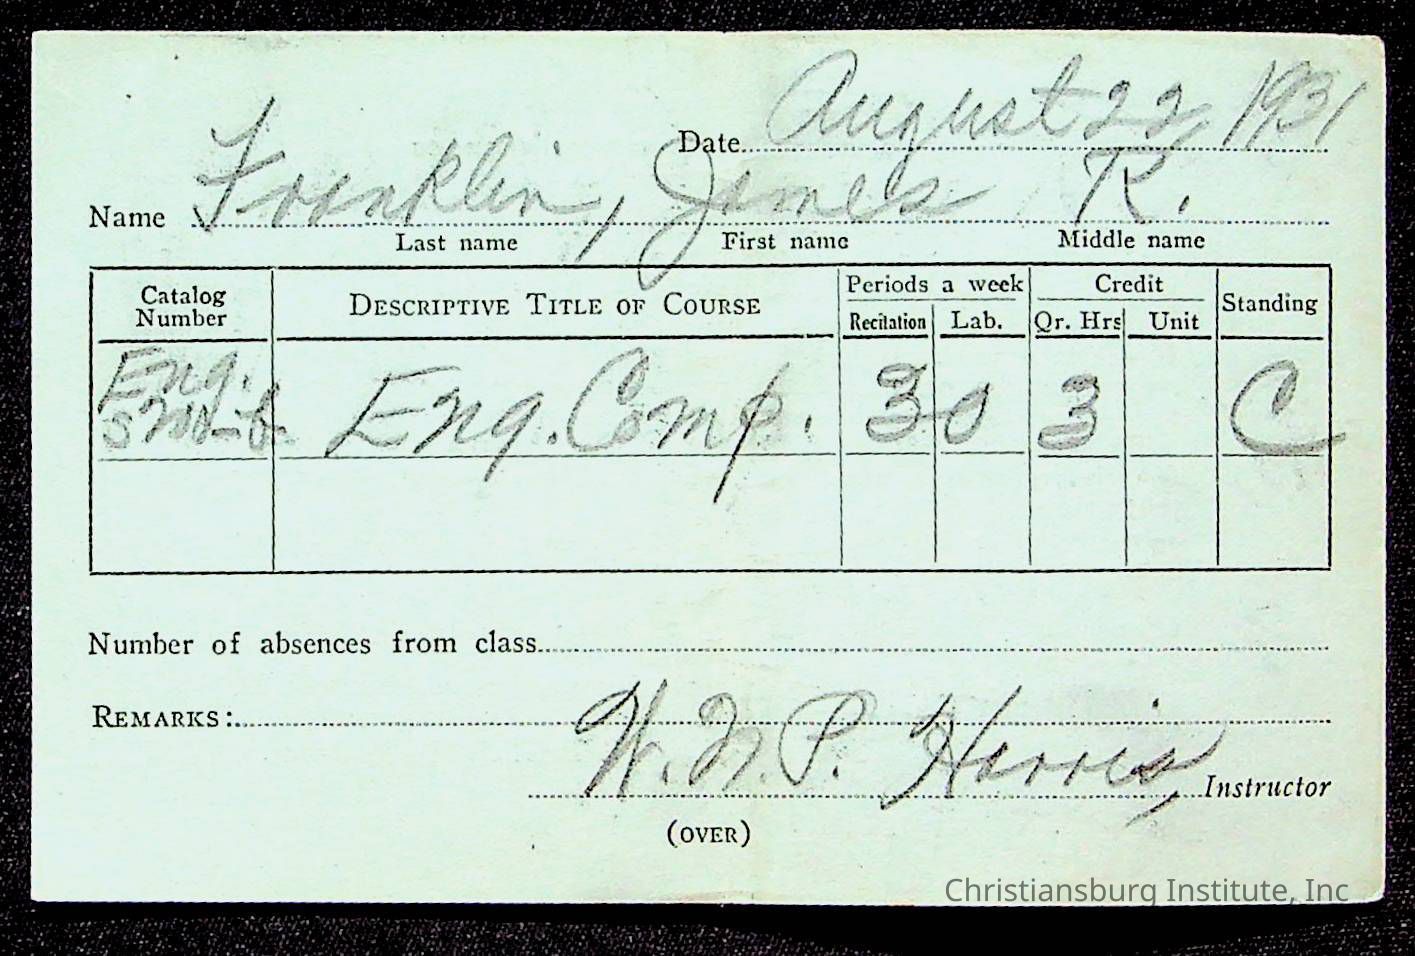 Date August 22, 1931
Name Franklin, James R.
Last name First name Middle name
Catalog Number DESCRIPTIVE TITLE OF COURSE Periods a week Credit Standing
Recitation Lab. Qr. Hrs Unit
Eng. Eng. Comp. 3 0 3 C
Number of absences from class
REMARKS:
W. N. P. Harris, Instructor
(OVER)
Christiansburg Institute, Inc